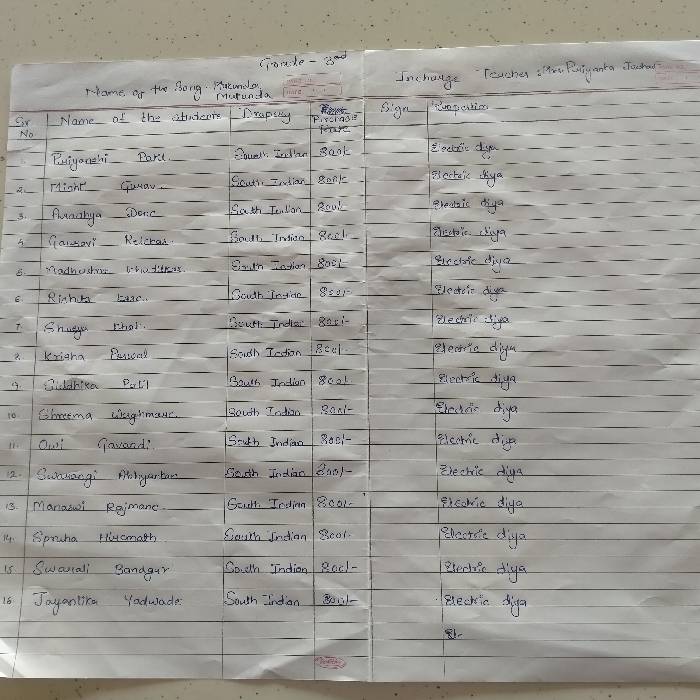 Grade - 3rd
Name of the Song - Mukunda Mukunda
Incharge Teacher : Mrs. Priyanka Jadhav
Sr No Name of the students Drapery Purchase Rate Sign Properties
1. Priyanshi Patil South Indian 800/- Electric diya
2. Gurav South Indian 800/- Electric diya
3. Aaradhya South Indian 800/- Electric diya
4. Gauravi Kelkar South Indian 800/- Electric diya
5. South Indian 800/- Electric diya
6. South Indian 800/- Electric diya
7. South Indian 800/- Electric diya
8. Krisha South Indian 800/- Electric diya
9. Siddhika Patil South Indian 800/- Electric diya
10. Shreema Waghmare South Indian 800/- Electric diya
11. Ovi Gavandi South Indian 800/- Electric diya
12. Swarangi Abhyankar South Indian 800/- Electric diya
13. Manaswi Rajmane South Indian 800/- Electric diya
14. Spruha Hiremath South Indian 800/- Electric diya
15. Swarali Bandgar South Indian 800/- Electric diya
16. Jayantika Yadwade South Indian 800/- Electric diya
El-